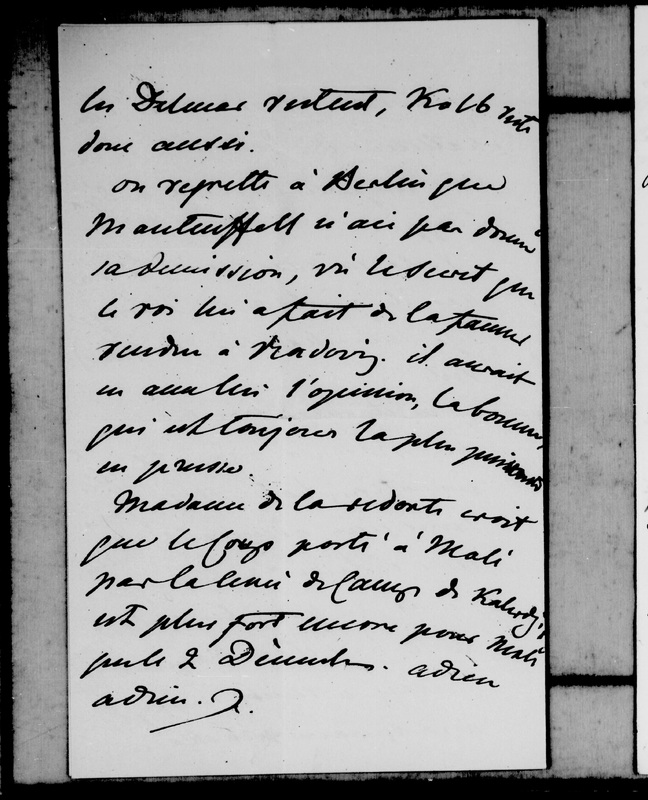 les Delmar restent, Kolb reste
donc aussi.
on regrette à Berlin que
Manteuffell n'ait pas donné
sa demission, vu le secret que
le roi lui a fait de la fameuse
à Radoviz. il aurait
eu avec lui l'opinion, la bonne,
qui est toujours la plus puissante
en prusse.
Madame de la redorte croit
que le Coup porté à Molé
par la levée de Camp de
est plus fort encore pour Molé
que le 2 Décembre. adieu
adieu.